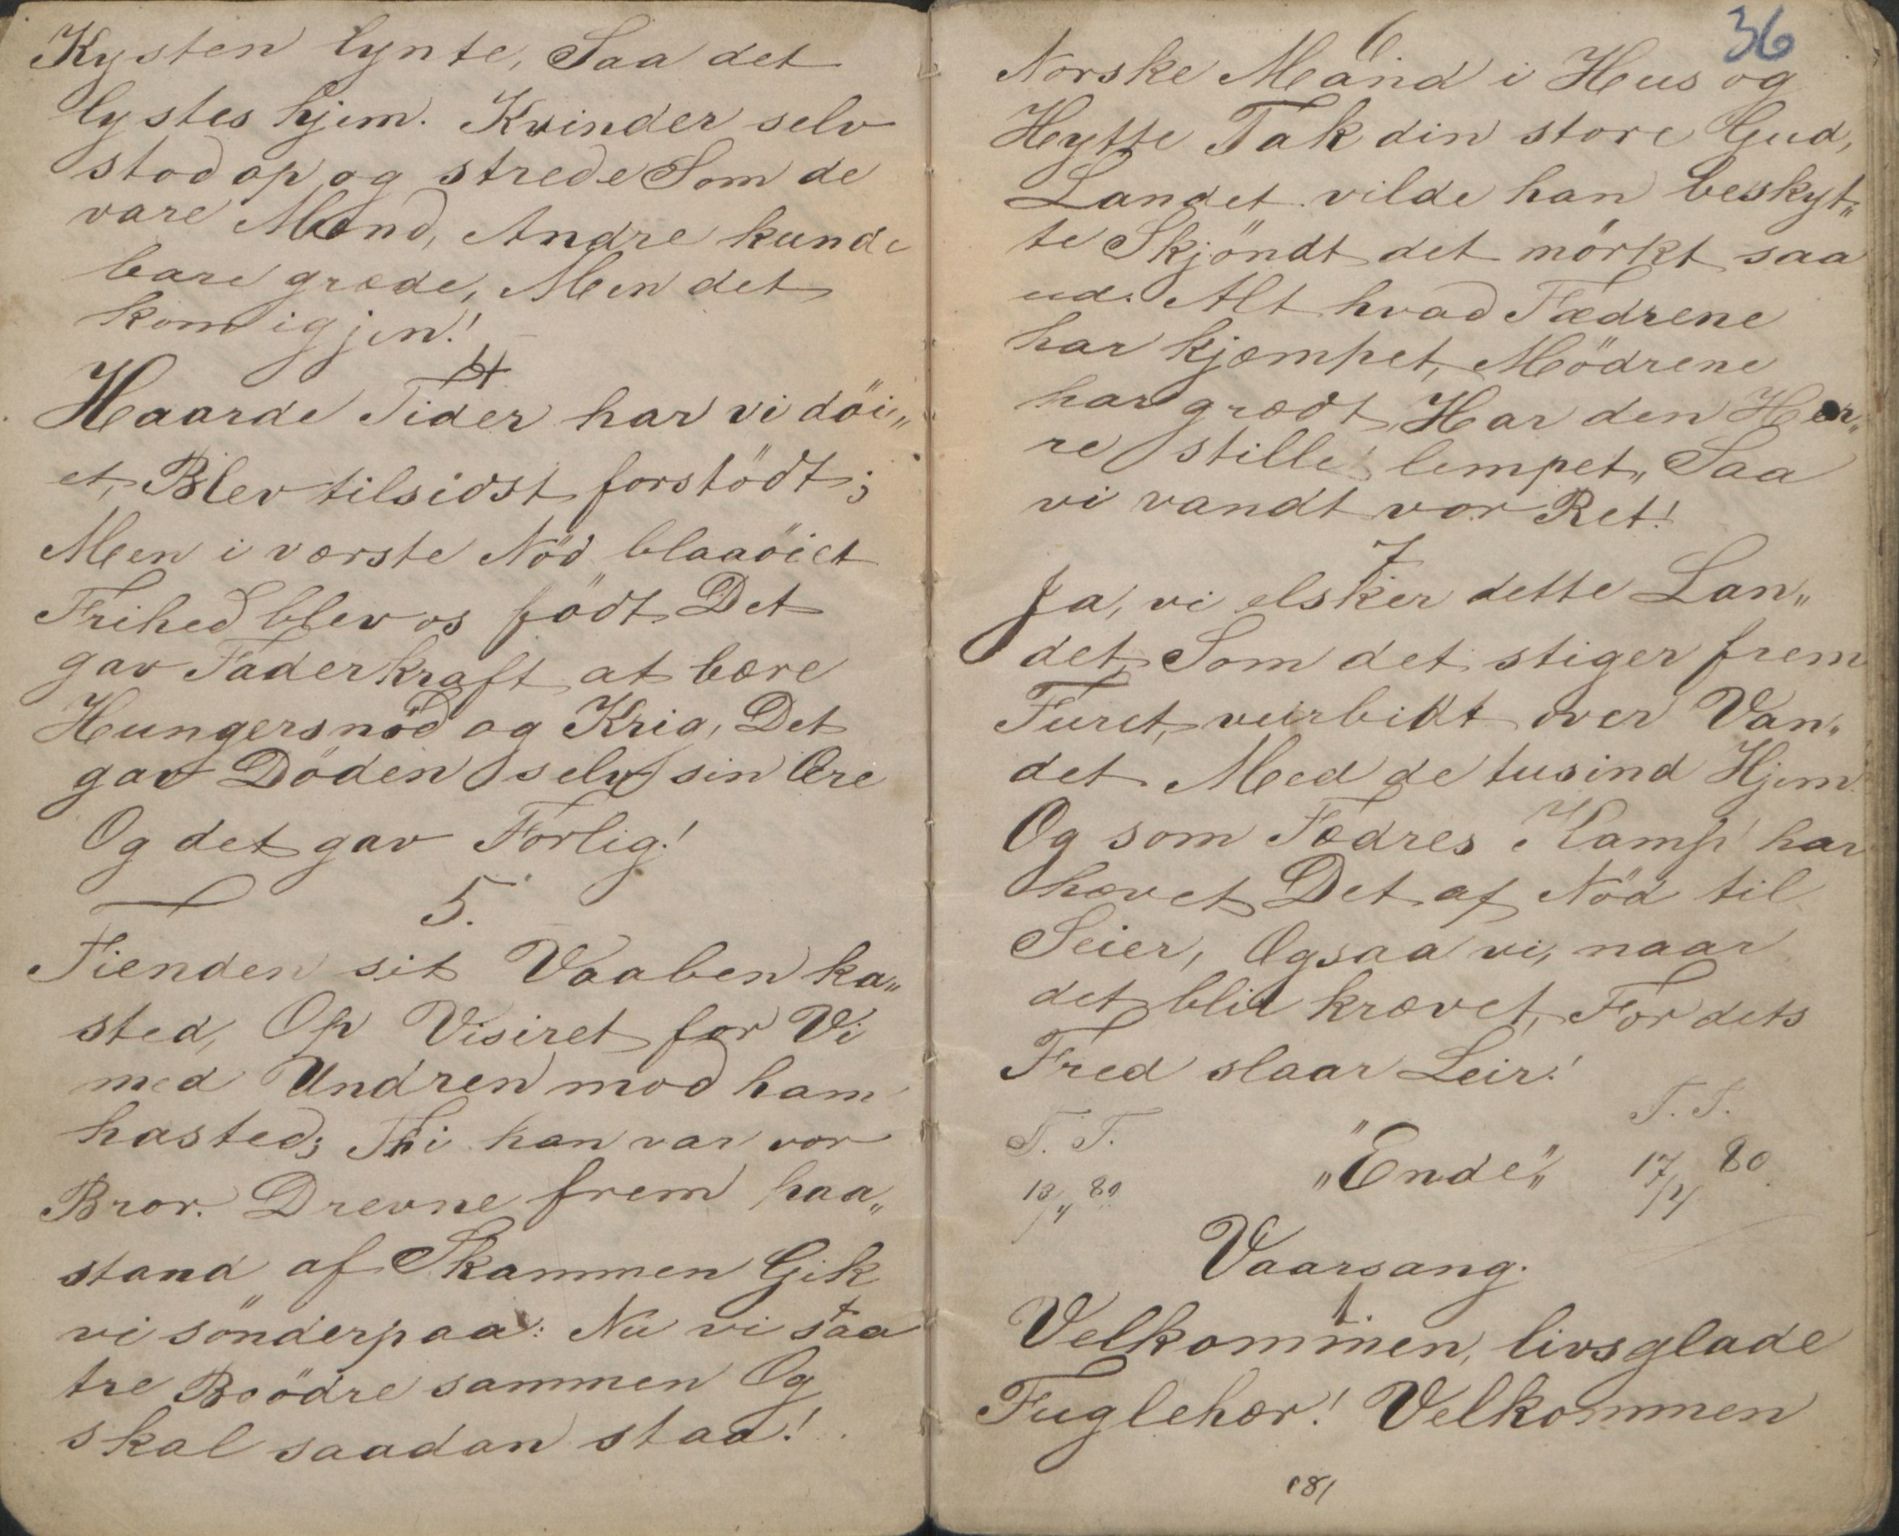 Kysten lynte, Saa det
lystes hjem. Kvinder selv
stod op og strede Som de
vare Mænd, Andre kunde
bare græde, Men det
kom igjen!
4
Haarde Tider har vi döi„
et, Blev tilsidst forstödt;
Men i værste Nöd blaaöiet
Frihed blev os födt. Det
gav Faderkraft at bære
Hungersnöd og Krig, Det
gav Döden selv sin Ære
Og det gav Forlig!
5.
Fienden sit Vaaben ka„
sted, Op Visiret for Vi
med Undren mod ham
hasted; Thi han var vor
Bror. Drevne frem paa„
stand af Skammen Gik
vi sönderpaa: Nu vi staa
tre Bröödre sammen Og
skal saadan staa!
36
6
Norske Mand i Hus og
Hytte Tak din store Gud,
Landet vilde han beskyt„
te Skjöndt det mörkt saa
ud. Alt hvad Fædrene
har kjæmpet, Mödrene
har grædt, Har den Her„
re stille lempet„ Saa
vi vandt vor Ret!
7
Ja, vi elsker dette Lan„
det, Som det stiger frem
Furet, veirbidt over Van„
det Med de tusind Hjem
Og som Fædres Kamp har
hævet Det af Nöd til
Seier, Ogsaa vi, naar
det blir krævet, For dets
Fred slaar Leir!
T. T. T. T.
„Ende„ 17/4 80
18/4 80
Vaarsang.
1
Velkommen, livsglade
Fuglehær! Velkommen
181